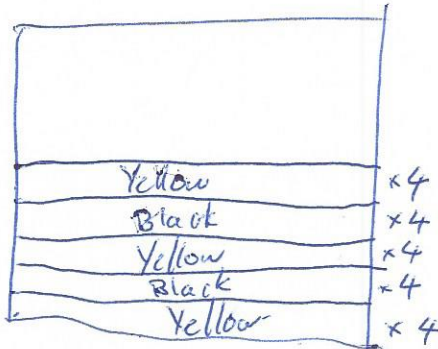 Yellow ×4
Black ×4
Yellow ×4
Black ×4
Yellow ×4